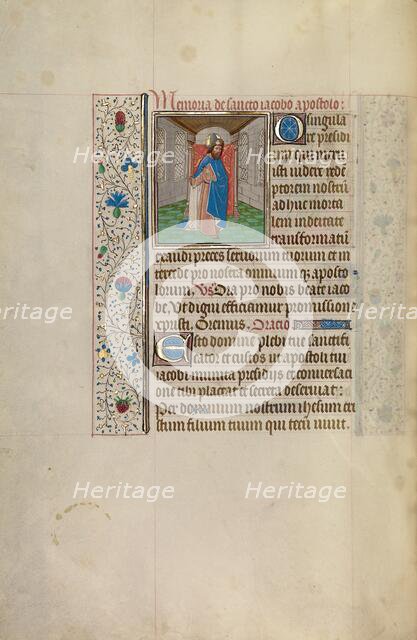 Memoria de sancto iacobo apostolo:
O singula
re presidi
um qui meru
isti videre rede
ptorem nostrū
ad huc morta
lem in deitate
transformatū
exaudi preces servorum tuorum et in
tercede pro nostra omnium que aposto
lorum. Vs Ora pro nobis beate iaco
be. Vt digni efficiamur promission
xpristi. Oremus. Oracio
Esto domine plebi tue sanctifi
cator et custos ut apostoli tui
iacobi munita presidijs et conversaci
one tibi placeat et secura deserviat:
Per dominum nostrum ihesum cri
stum filium tuum qui tecū vivit.
Heritage
Heritage
Heritage
Heritage
Heritage
Heritage